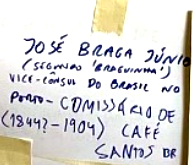 JOSÉ BRAGA JÚNIO
(SEGUNDO 'BRAGUINHA')
VICE-CÔNSUL DO BRASIL NO
PORTO - COMISSÁRIO DE
(1844?-1904) CAFÉ
SANTOS BR